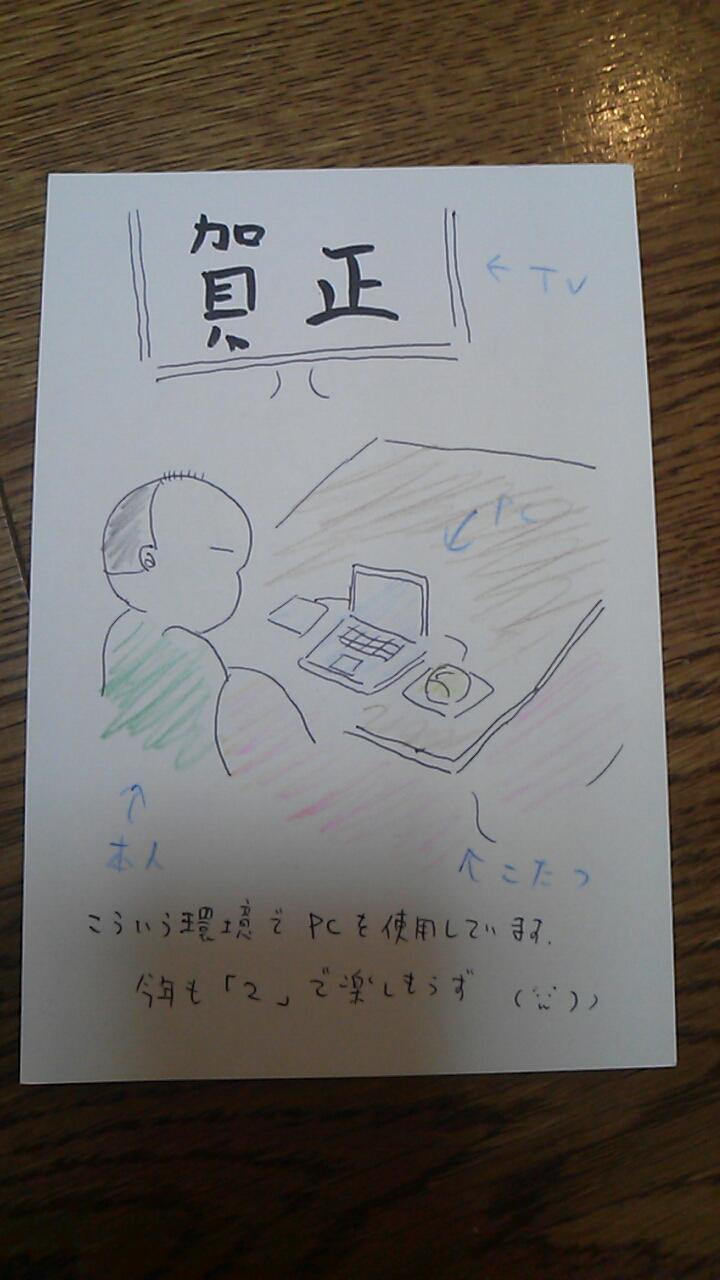 賀正
← TV
↙ PC
↑
本人
↑ こたつ
こういう環境で PCを使用しています.
今年も「2」で楽しもうず (¨))